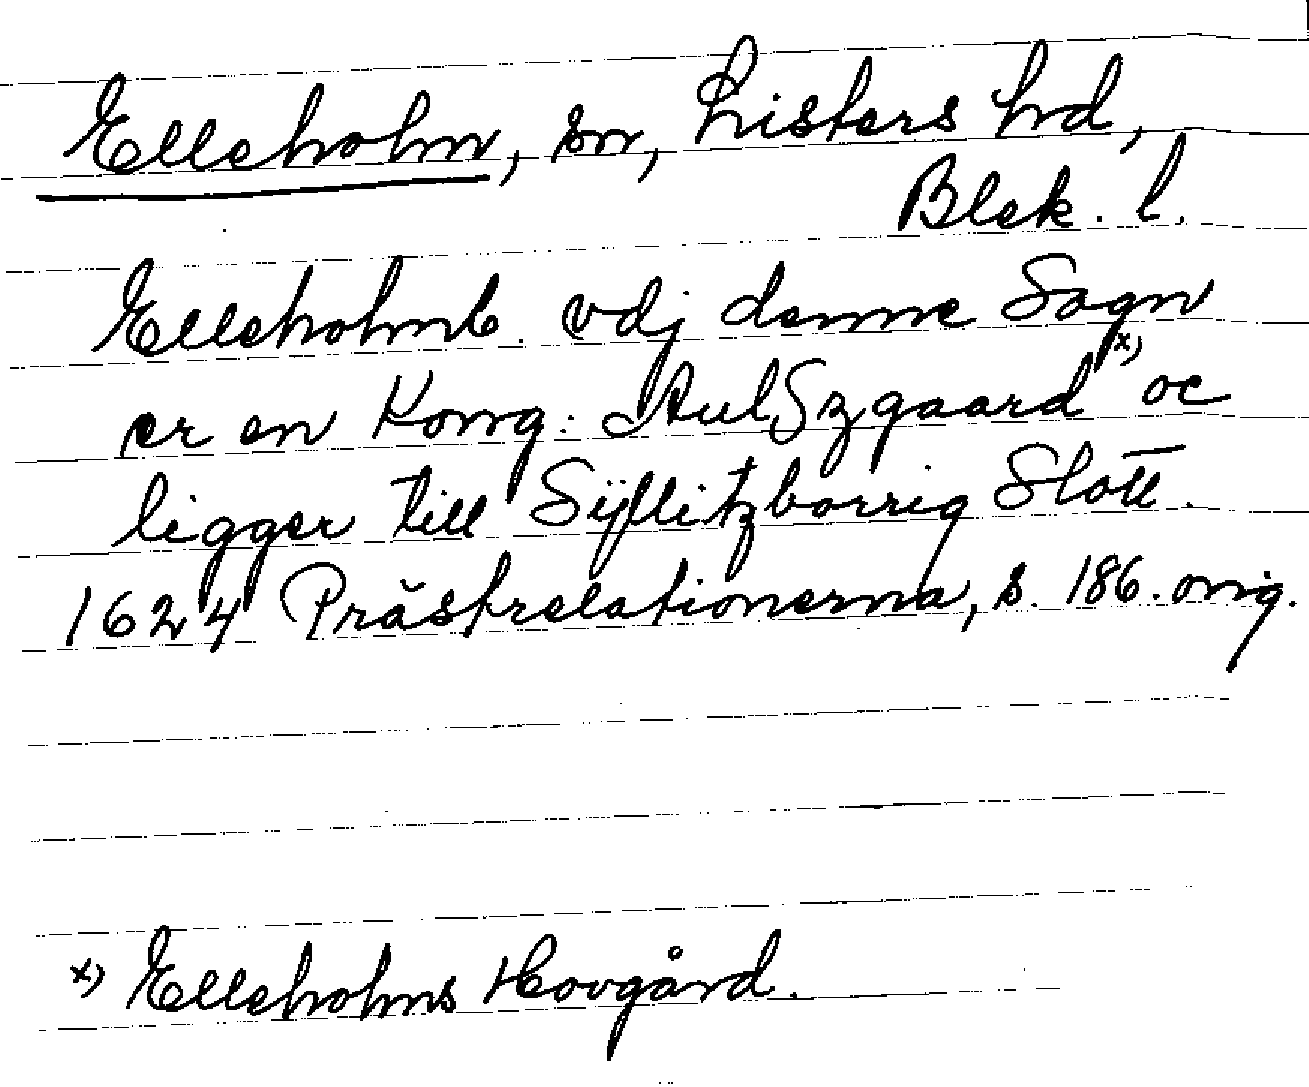 Elleholm, sn, Listers hd,
Blek. l.
Elleholmb. vdj denne Sogn
er en Kong: AulSzgaard x) oc
ligger till Sÿllitzborrig Slott.
1624 Prästrelationerna, s. 186. orig.
x) Elleholms Hovgård.